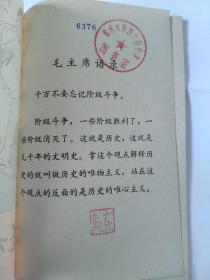 6376
毛主席语录
千万不要忘记阶级斗争。
阶级斗争，一些阶级胜利了，一
些阶级消灭了。这就是历史，这就是
几千年的文明史。拿这个观点解释历
史的就叫做历史的唯物主义，站在这
个观点的反面的是历史的唯心主义。